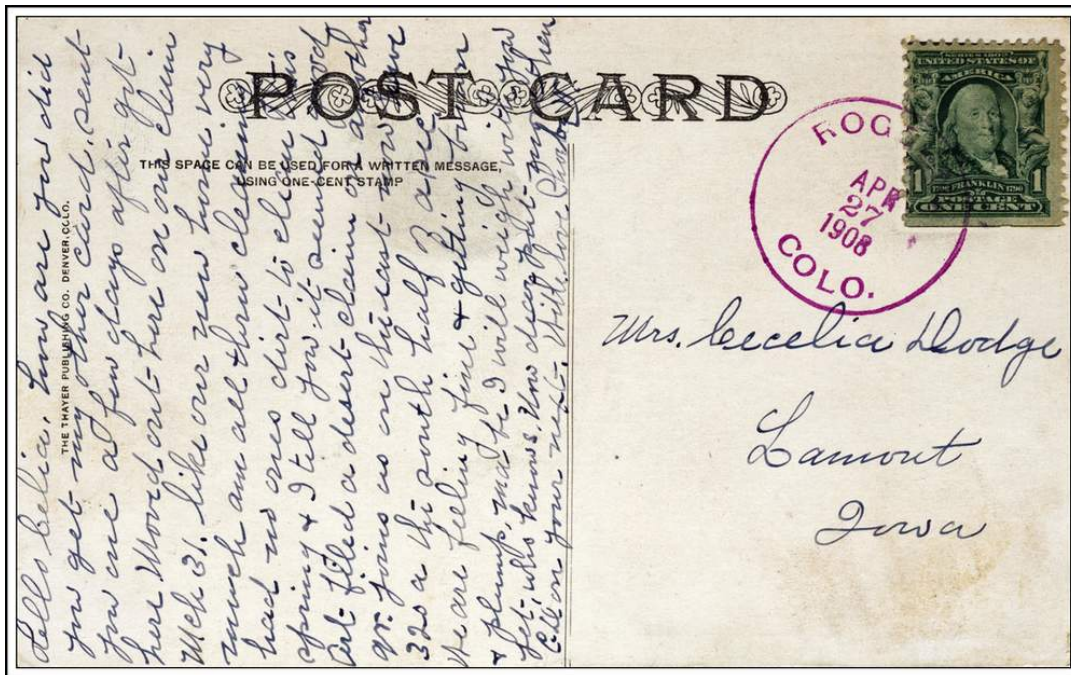 POST CARD
THIS SPACE CAN BE USED FOR A WRITTEN MESSAGE,
USING ONE-CENT STAMP
THE THAYER PUBLISHING CO. DENVER, COLO.
Hello Celia. how are you did
you get my other card. sent
you one a few days after got
here Moved out here on our claim
Mch 31. like our new home very
much am all thru cleaning
had no ones dirt to clean this
spring & I tell you it seemed good
Art filed a desert claim on another
qr. joins us on the east now have
320 a the south half
We are feeling fine & getting
& plump, may be I will weigh with you
yet, who knows. How did you
on your next. With love
ROG
APR
27
1908
COLO.
SERIES 1902
UNITED STATES OF
AMERICA
1 1706 FRANKLIN 1790 1
POSTAGE
ONE CENT
Mrs. Cecelia Dodge
Lamont
Iowa